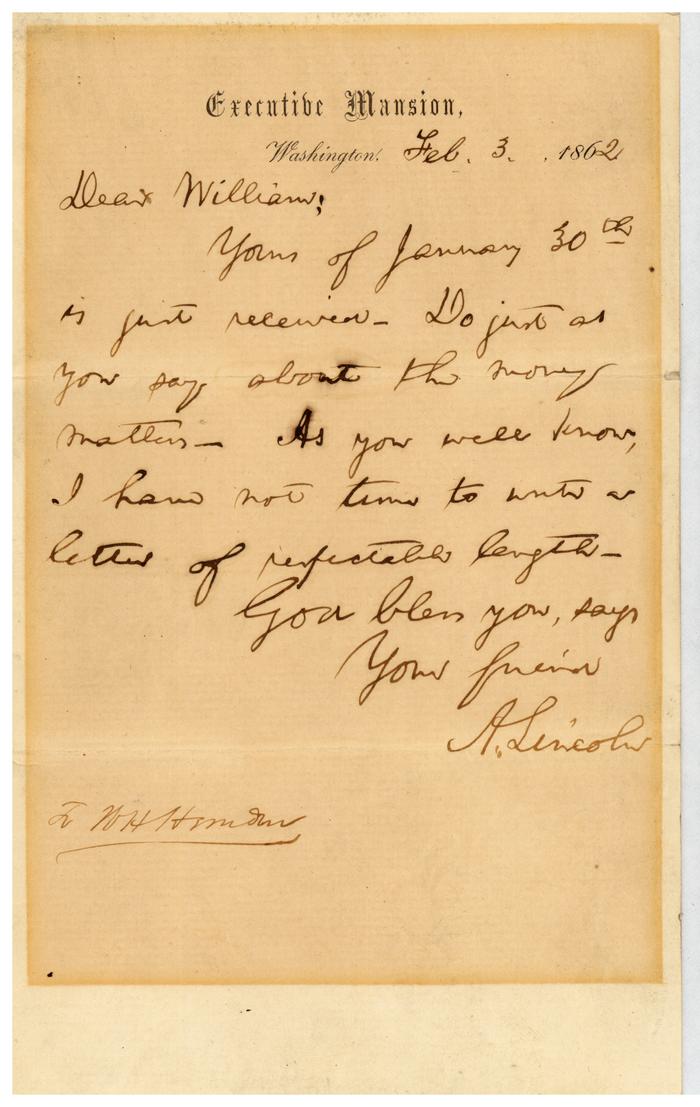 Executive Mansion,
Washington, Feb. 3. , 1862
Dear William:
Yours of January 30th
is just received— Do just as
you say about the money
matters— As you well know,
I have not time to write a
letter of respectable length—
God bless you, says
Your friend
A. Lincoln
To W H Herndon